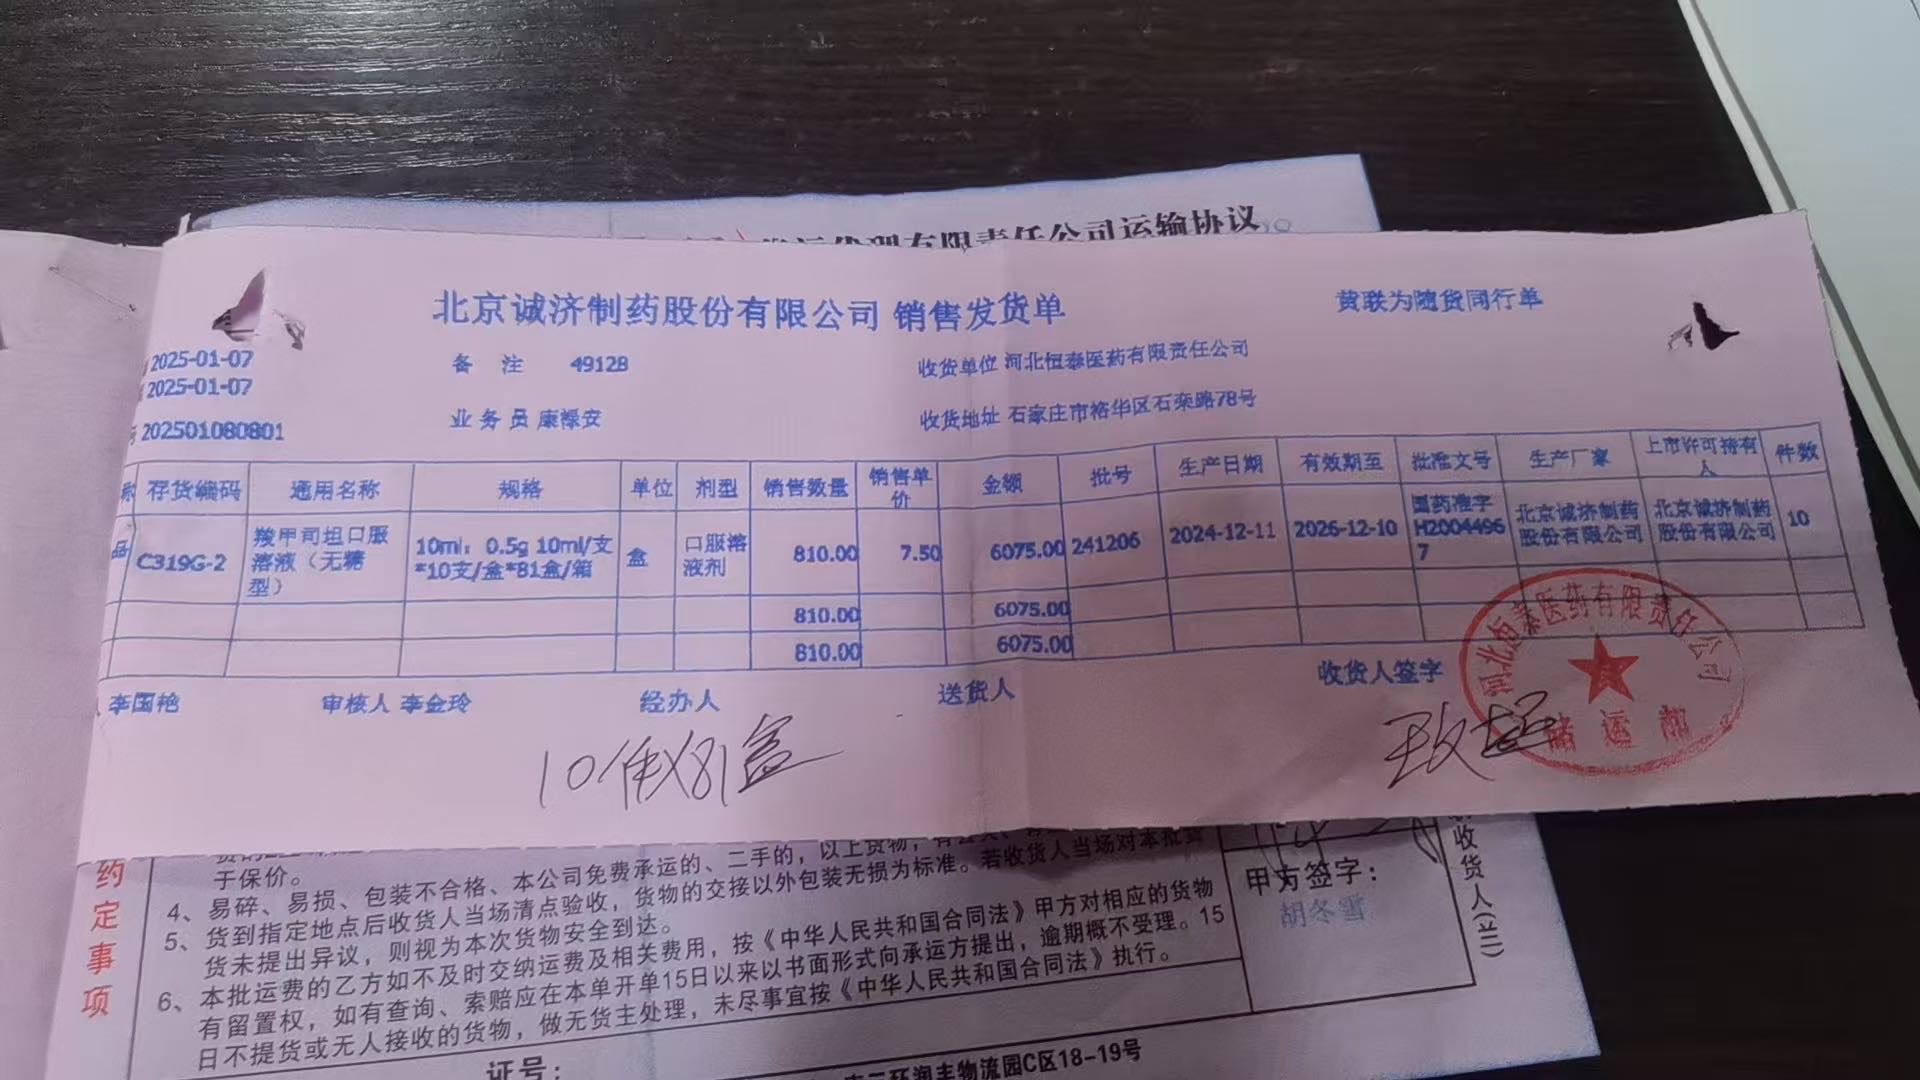 发运代理有限责任公司运输协议
北京诚济制药股份有限公司 销售发货单
黄联为随货同行单
2025-01-07
备 注 49128
收货单位 河北恒泰医药有限责任公司
2025-01-07
业务员 康禄安
收货地址 石家庄市裕华区石栾路78号
202501080801
称 存货编码 通用名称 规格 单位 剂型 销售数量 销售单价 金额 批号 生产日期 有效期至 批准文号 生产厂家 上市许可持有人 件数
品 C319G-2 羧甲司坦口服溶液（无糖型） 10ml：0.5g 10ml/支*10支/盒*81盒/箱 盒 口服溶液剂 810.00 7.50 6075.00 241206 2024-12-11 2026-12-10 国药准字H20044967 北京诚济制药股份有限公司 北京诚济制药股份有限公司 10
810.00 6075.00
810.00 6075.00
李国艳 审核人 李金玲 经办人 送货人 收货人签字
河北恒泰医药有限责任公司
储运部
10件×81盒
约定事项
于保价。
4、易碎、易损、包装不合格、本公司免费承运的、二手的，以上货物，
5、货到指定地点后收货人当场清点验收，货物的交接以外包装无损为标准。若收货人当场对本批货
货未提出异议，则视为本次货物安全到达。
6、本批运费的乙方如不及时交纳运费及相关费用，按《中华人民共和国合同法》甲方对相应的货物
有留置权，如有查询、索赔应在本单开单15日以来以书面形式向承运方提出，逾期概不受理。15
日不提货或无人接收的货物，做无货主处理，未尽事宜按《中华人民共和国合同法》执行。
甲方签字：
胡冬雪
收货人(兰)
证号：
二环润丰物流园C区18-19号